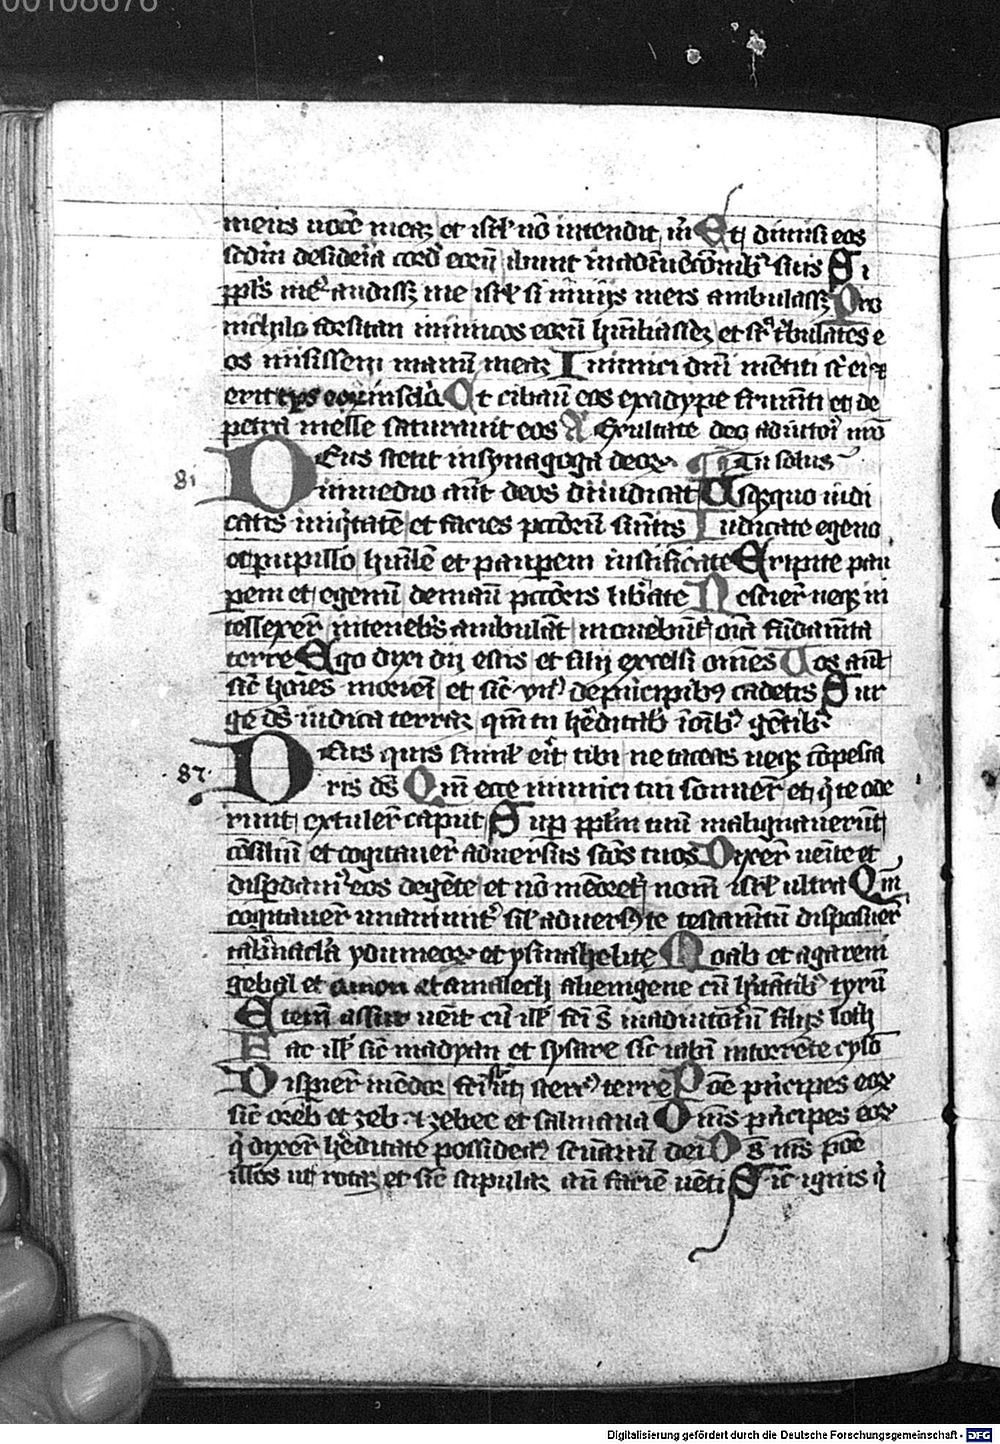 00108676
meus vocē meaꝫ et isrl̄ nō intendit m̄ Et dimisi eos
scdm desid'ia cord' eoꝝ ibunt ī adinuēcōnibꝰ suis Si
ppl's me' audissꝫ me isrl' si ī vijs meis ambulassꝫ Pro
nichylo forsitan inimicos eoꝝ hūiliassem et sup tbulātes e
os misissem manū meaꝫ Inimici dnī mētiti st ei ⁊
erit tps eoꝝ in scl'a Et cibauit eos ex adype frumēti et de
petra melle saturauit eos Exultate deo adiutori nrō
81 Deus stetit in synagoga deoꝝ Tu solus
in medio aūt deos diiudicat Usqꝫquo iudi
catis iniq'tatē et facies pctorū sūitis Iudicate egeno
et pupillo hūilē et paupem iustificate Eripite pau
pem et egenū de manu pctoris lib'ate Nescier' neqꝫ in
tellexer' in tenebris ambulāt mouebūt' oīa fūdamīta
terre Ego dixi dij estis et filij excelsi omēs Vos aūt
sic hoīes moriem̄ et sic vn' de principibꝰ cadetis Sur
ge ds iudica terraꝫ qm tu h'editab' ī oībꝰ gētibꝰ
82 Deus quis simil' erit tibi ne taceas neqꝫ cōpesca
ris ds Qm ecce inimici tui sonuer' et q' te ode
runt extuler' caput Sup pplm tuū malignauerūt
cōsiliū et cogitauer' aduersus scōs tuos Dixer' venite et
dispdam' eos de gēte et nō mēoret' nomē isrl' ultra Qm
cogitauer' unanimit' sil' aduersꝰ te testamtū disposuer'
tab'nacl'a ydumeoꝝ et ysmahelite Moab et agareni
gebal et amon et amalech alienigene cū h'itātibꝰ tyrū
Etem assur venit cū ill' fcī s' in adiutoriū filijs loth
Fac ill' sic madyan et sysare sic iabin in torrēte cyson
Disper' in endor fcī st ut sterc' terre Pone prīcipes eoꝝ
sic oreb et zeb ⁊ zebee et salmana Omīs prīcipes eoꝝ
q' dixer' h'editate possideam' scuariū dei Ds ms pone
illos ut rotaꝫ et sic stipulaꝫ an̄ faciē venti Sic ignis q'
Digitalisierung gefördert durch die Deutsche Forschungsgemeinschaft - DFG